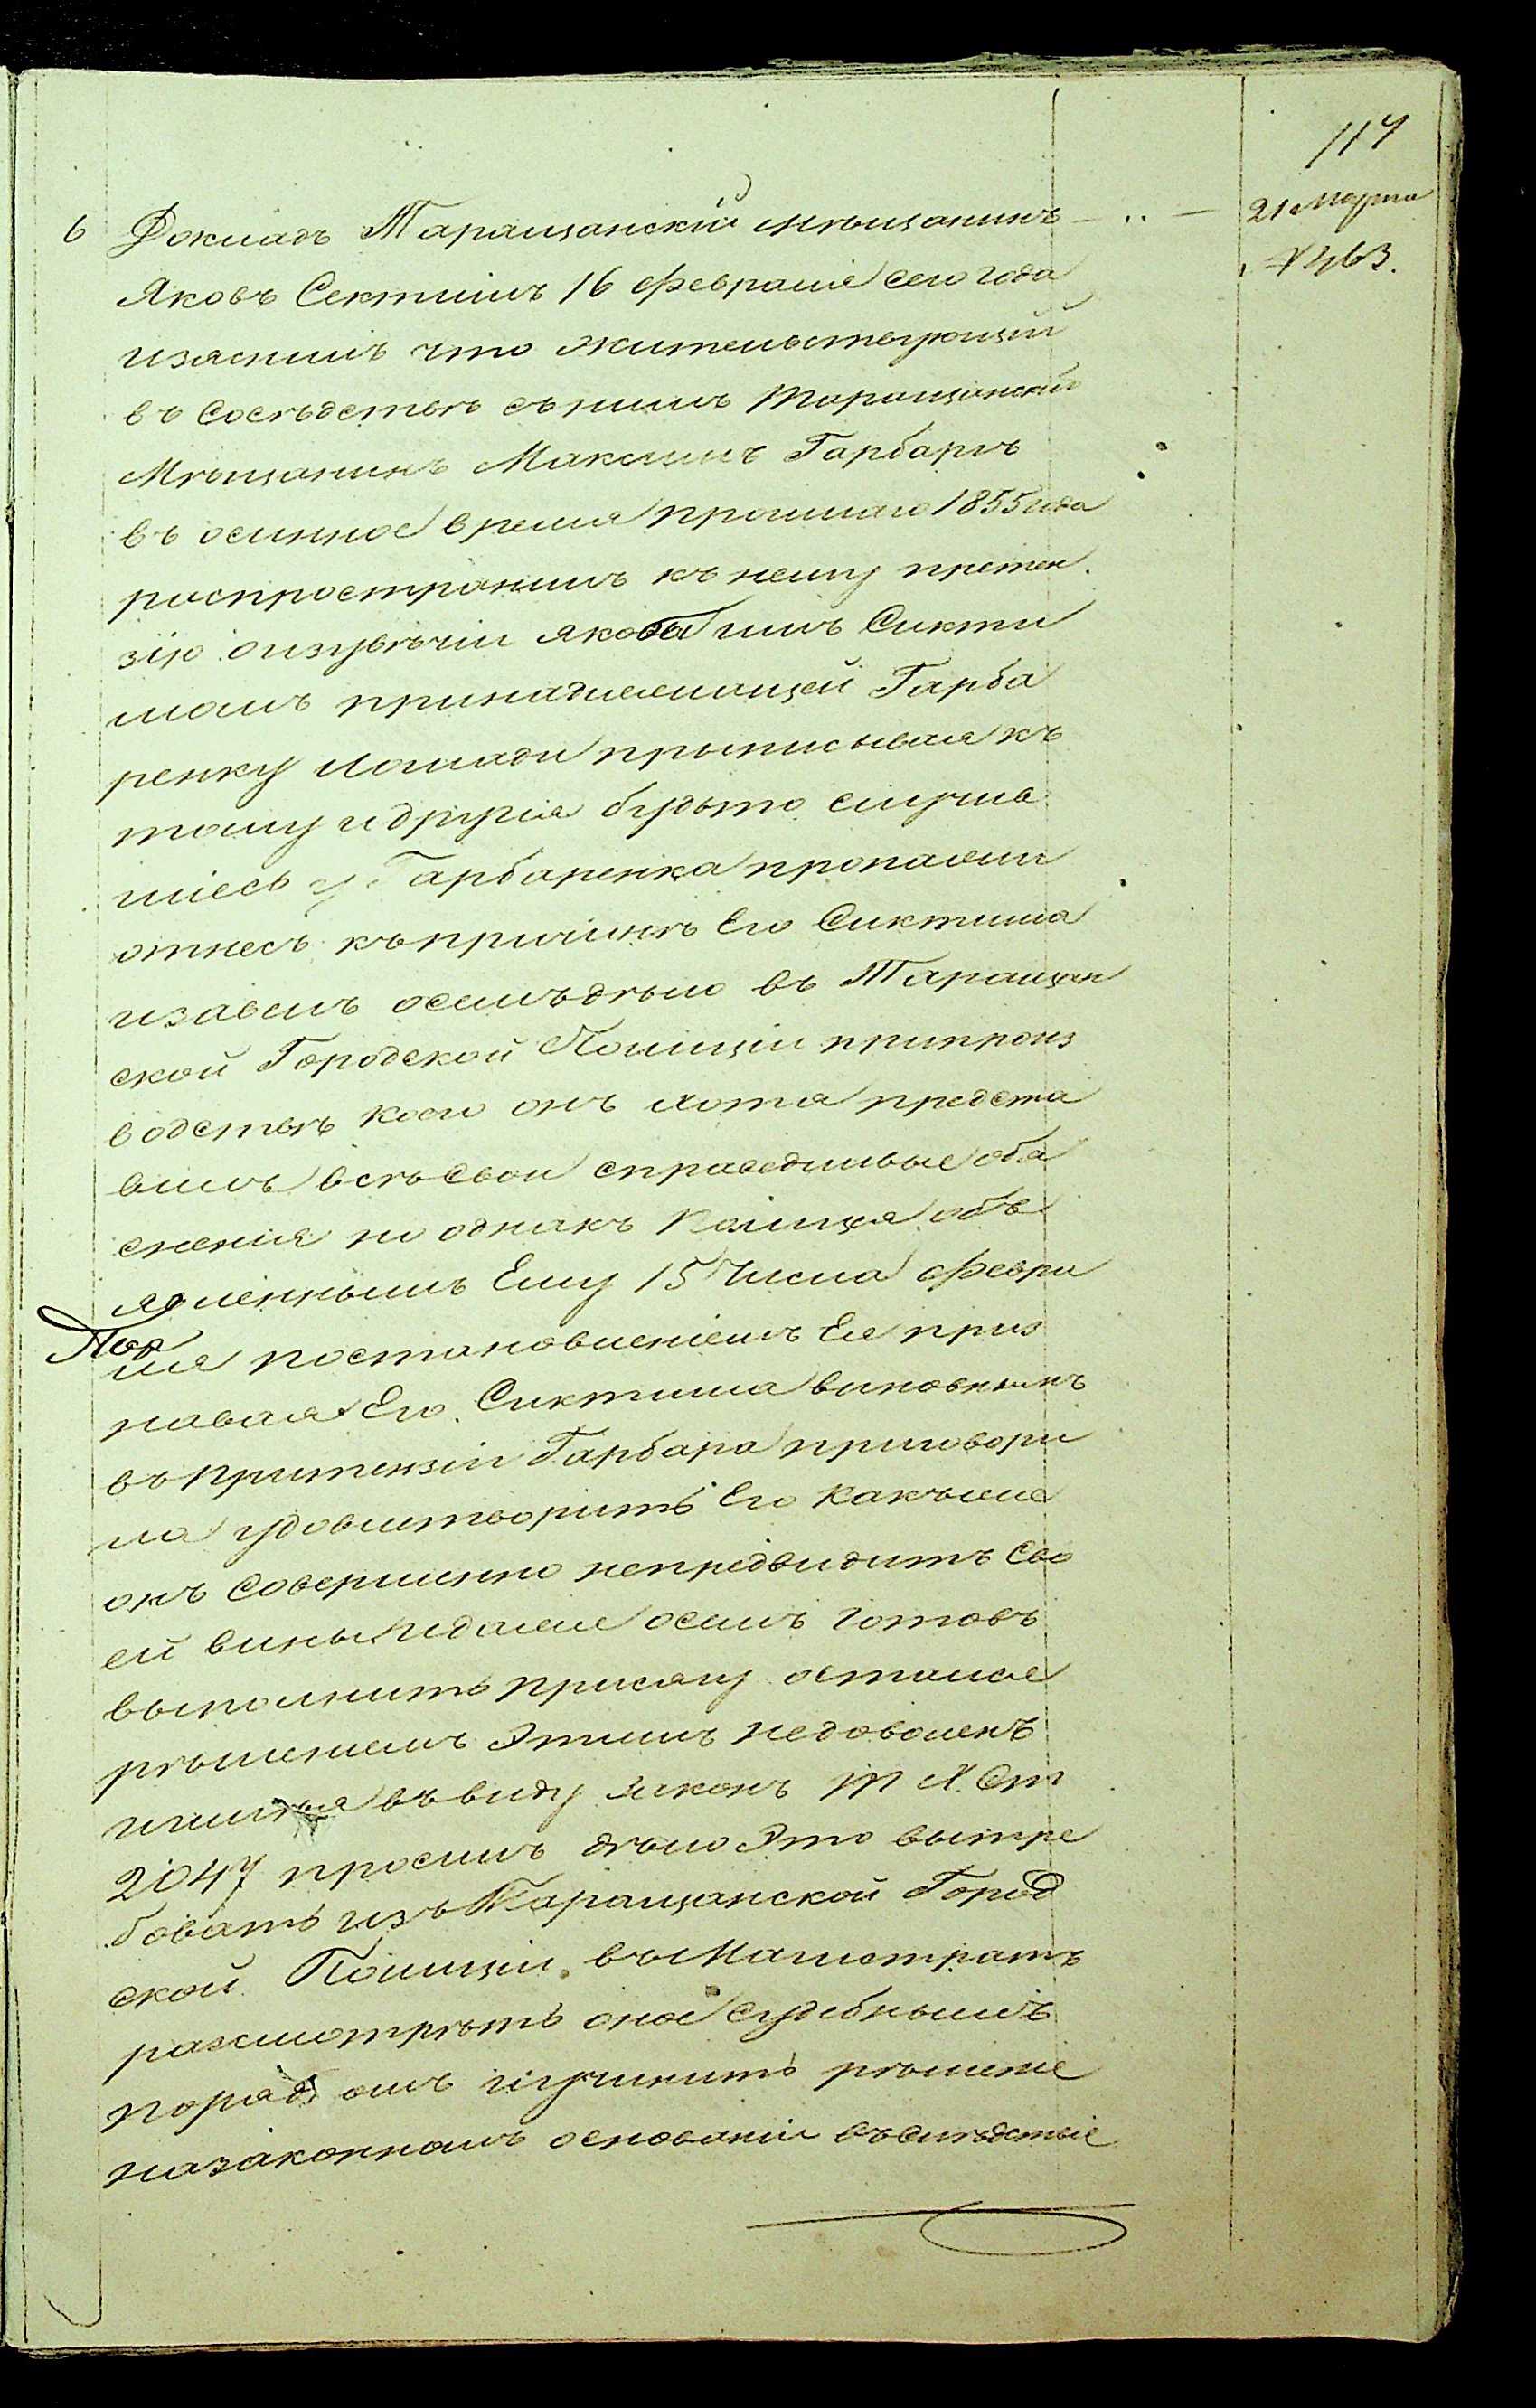 117
6 Докладъ Таращанскій мѣщанинъ — .. — 21 Марта
№ 463.
Яковъ Сектимъ 16 февраля сего года
изяснилъ что жительствующій
въ сосѣдствѣ съ нимъ Таращанскій
Мѣщанинъ Максимъ Гарбаръ
въ осинное время прошлаго 1855 года
распространилъ къ нему претен
зію о изувѣчіи якобы имъ Сикти
мамъ принадлежащей Гарба
ренку лошади прыписывая къ
тому и другія будьто случив
шіесь у Гарбаренка пропажи
отнесъ къ причинѣ Его Сиктима
и завелъ о семъ дѣло въ Таращан
ской Городской Полиціи при произ
водствѣ коего онъ хотя предста
вилъ всѣ свои справедливые обя
снения но однакъ Полиція объ
явленнымъ Ему 15 Числа февра
ля постановленіемъ Ея приз
навая Его Сиктима виновнымъ
въ притензіи Гарбара приговори
ла удовлетворить Его какъ же
онъ совершенно непредвидитъ сво
ей вины и даже о семъ готовъ
выполнить присягу остался
рѣшениемъ Этимъ недоволенъ
и имѣя въ виду законъ Т. X. Ст
2047 просилъ дѣло Это вытре
бовать изъ Таращанской Город
ской Полиціи въ Магистратъ
разсмотрѣть оное судебнымъ
порядкомъ и учинить рѣшение
на законномъ основаніи въ слѣдствіе